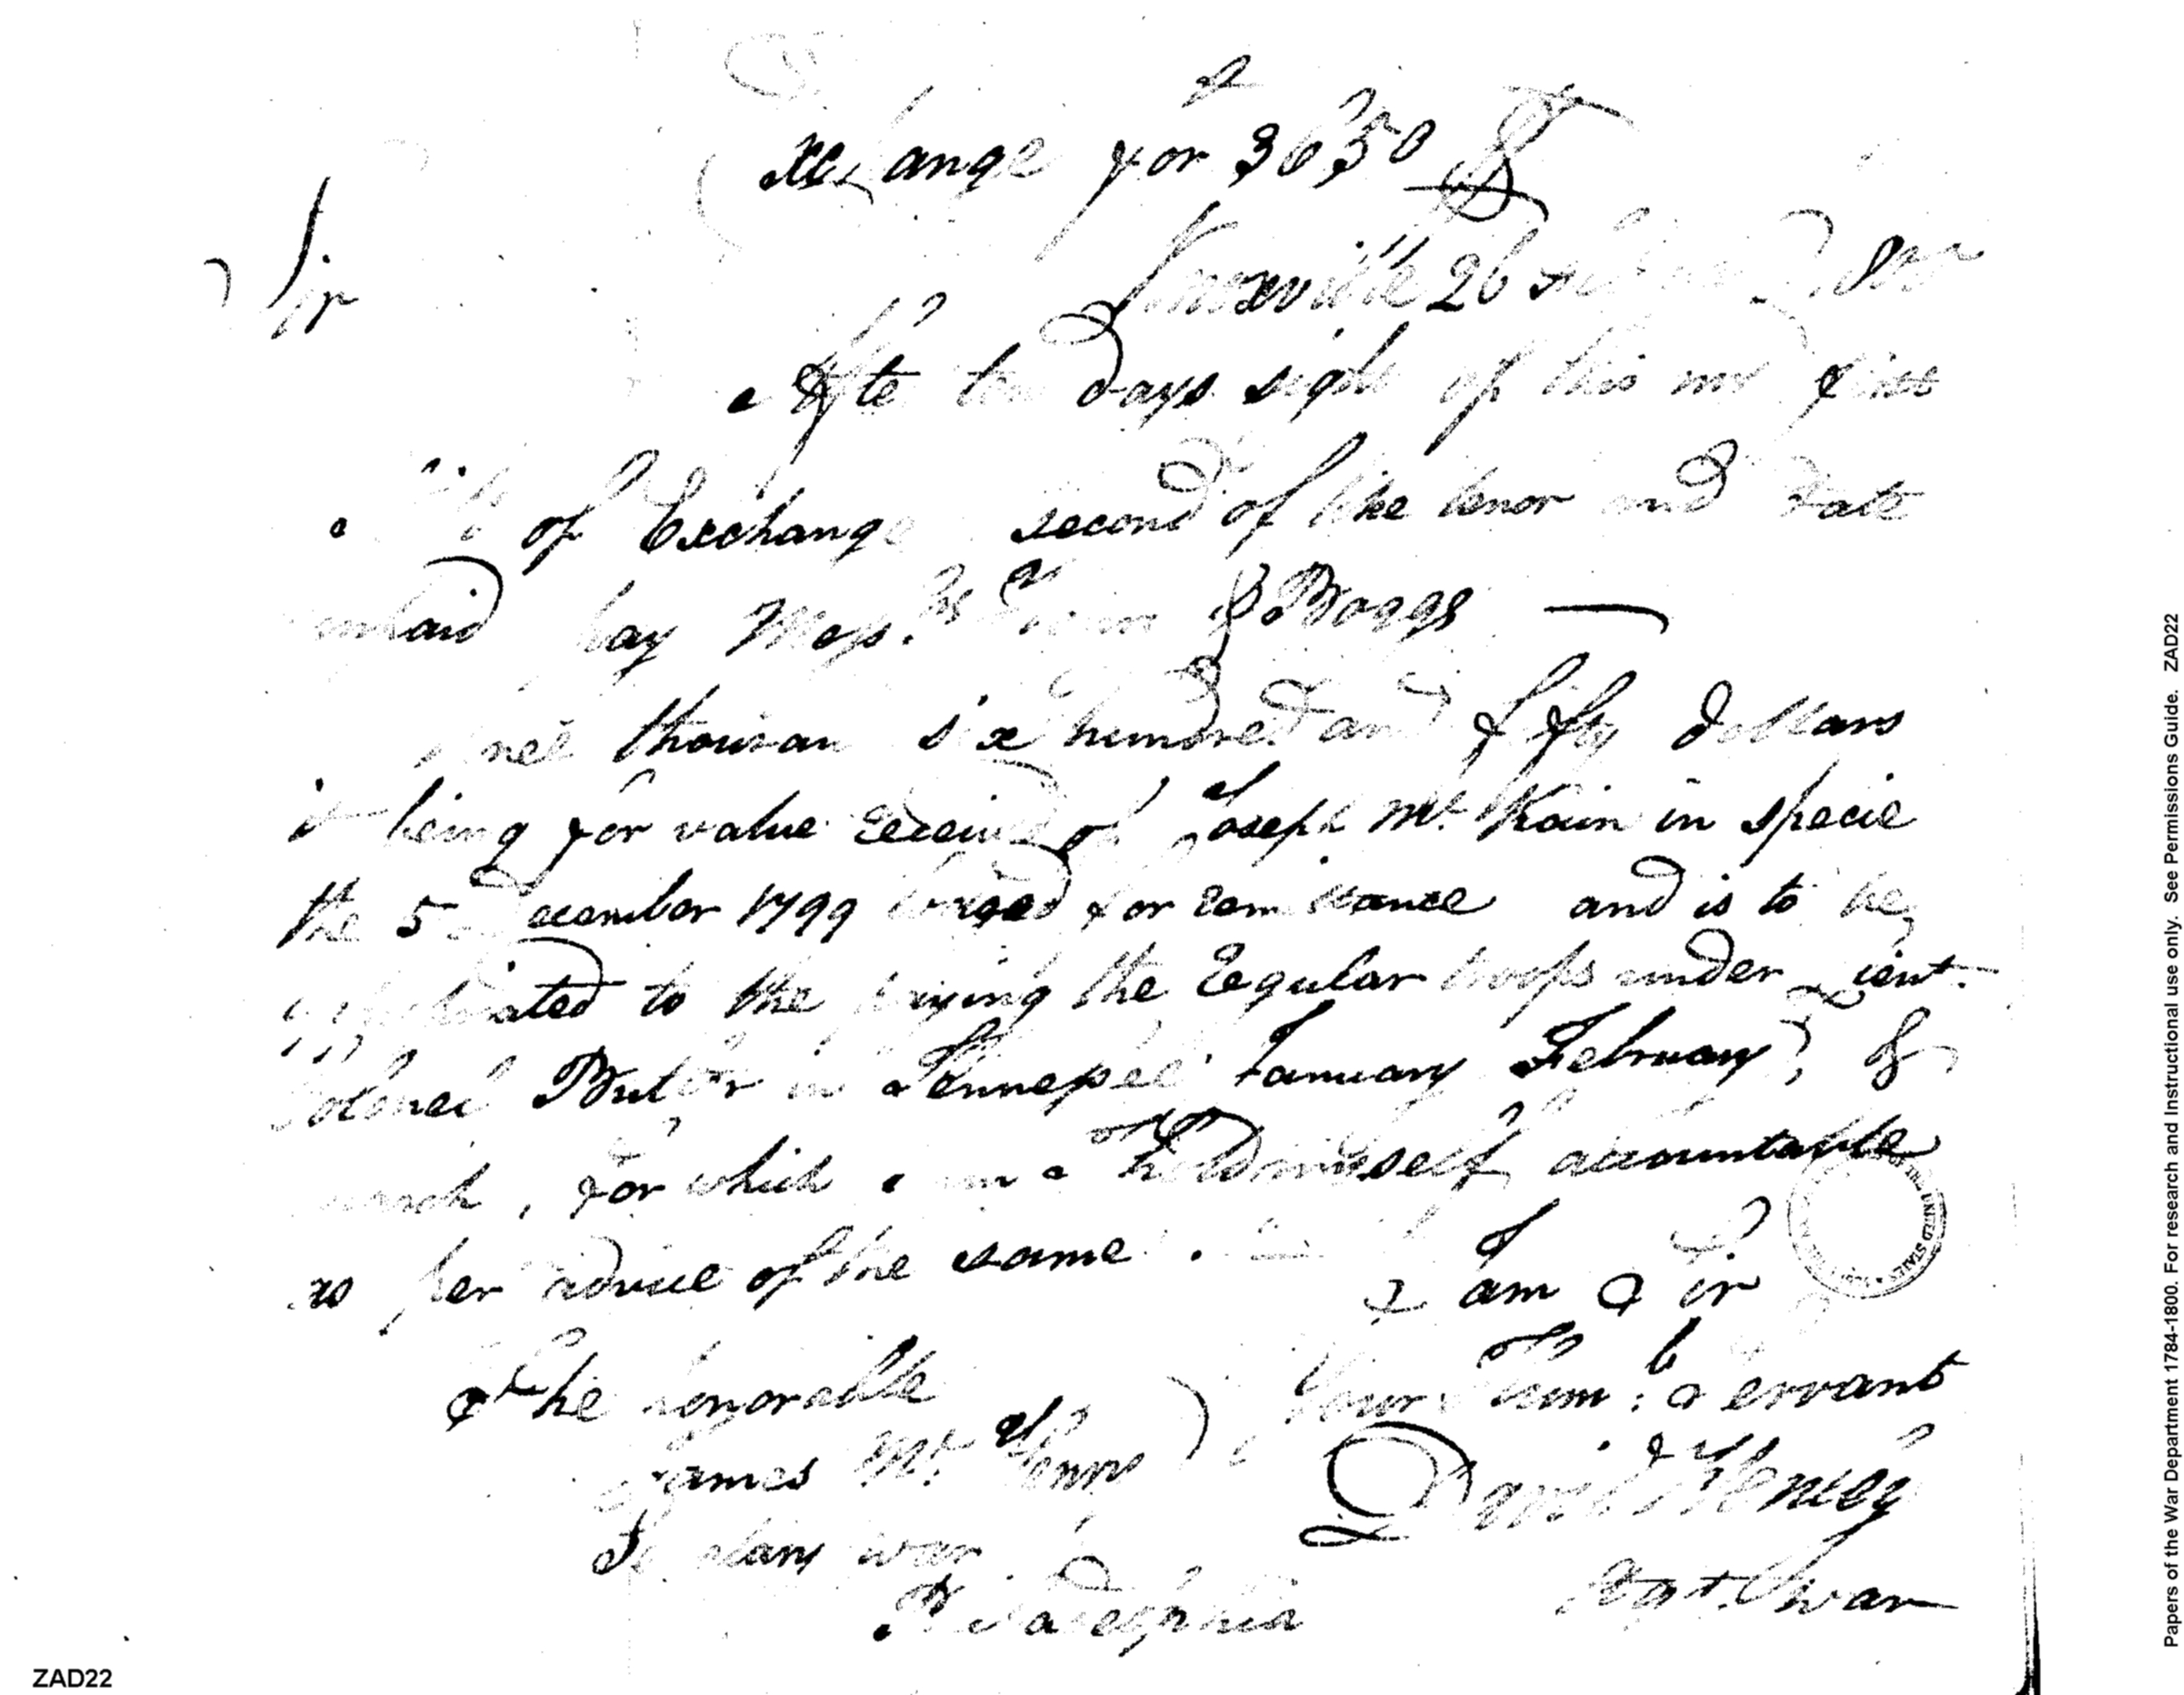 Exchange for 3650 $
Knoxville 26 February 1800
Sir
After ten days sight of this my first
Bill of Exchange second of like tenor and date
unpaid pay Mess.rs & Boggs —
three thousand six hundred and fifty dollars
it being for value received of Joseph Mc. Kain in specie
the 5 December 1799 lodged for remittance and is to be
appropriated to the paying the regular troops under Lieut.
Colonel Butler in Tennessee January February &
March, for which I hold myself accountable
as per advice of the same.
I am Sir
Your Humb: Servant
David Henley
Agt. War
The honorable
James Mc. Henry
Secretary war
Philadelphia
UNITED STATES
ZAD22
Papers of the War Department 1784-1800. For research and Instructional use only. See Permissions Guide. ZAD22